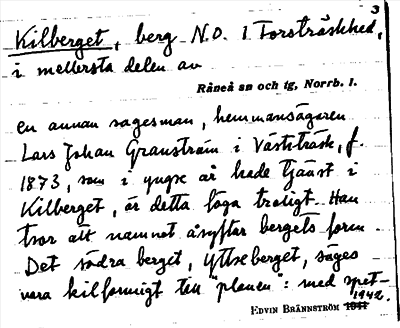 3
Kilberget, berg N.O. i Forsträskhed,
i mellersta delen av
Råneå sn och tg, Norrb. l.
en annan sagesman, hemmansägaren
Lars Johan Granström i Västiträsk, f.
1873, som i yngre år hade tjänst i
Kilberget, är detta föga troligt. Han
tror att namnet åsyftar bergets form.
Det södra berget, Yttreberget, säges
vara kilformigt till "planen": med spet-
1942.
EDVIN BRÄNNSTRÖM 1941